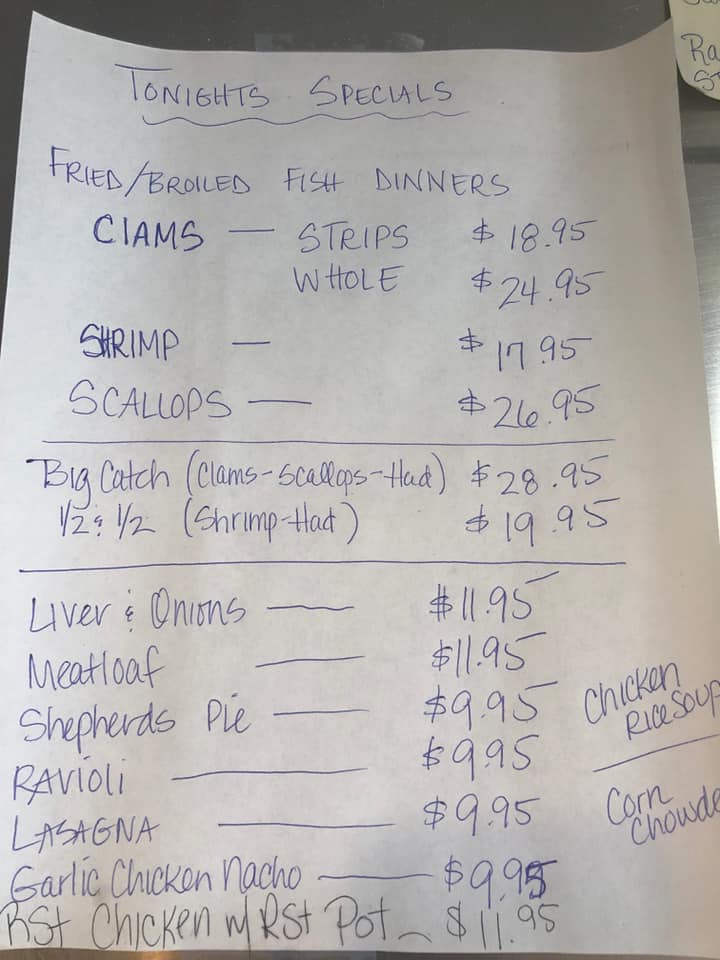 TONIGHTS SPECIALS
FRIED/BROILED FISH DINNERS
ClAMS — STRIPS $18.95
WHOLE $24.95
SHRIMP — $17.95
SCALLOPS — $26.95
Big Catch (Clams-Scallops-Had) $28.95
1/2 & 1/2 (Shrimp-Had) $19.95
Liver & Onions — $11.95
Meatloaf — $11.95
Shepherds Pie — $9.95
RAvioli — $9.95
LASAGNA — $9.95
Garlic Chicken Nacho — $9.95
RSt Chicken w/ RSt Pot — $11.95
Chicken
Rice Soup
Corn
Chowde
Ra
ST